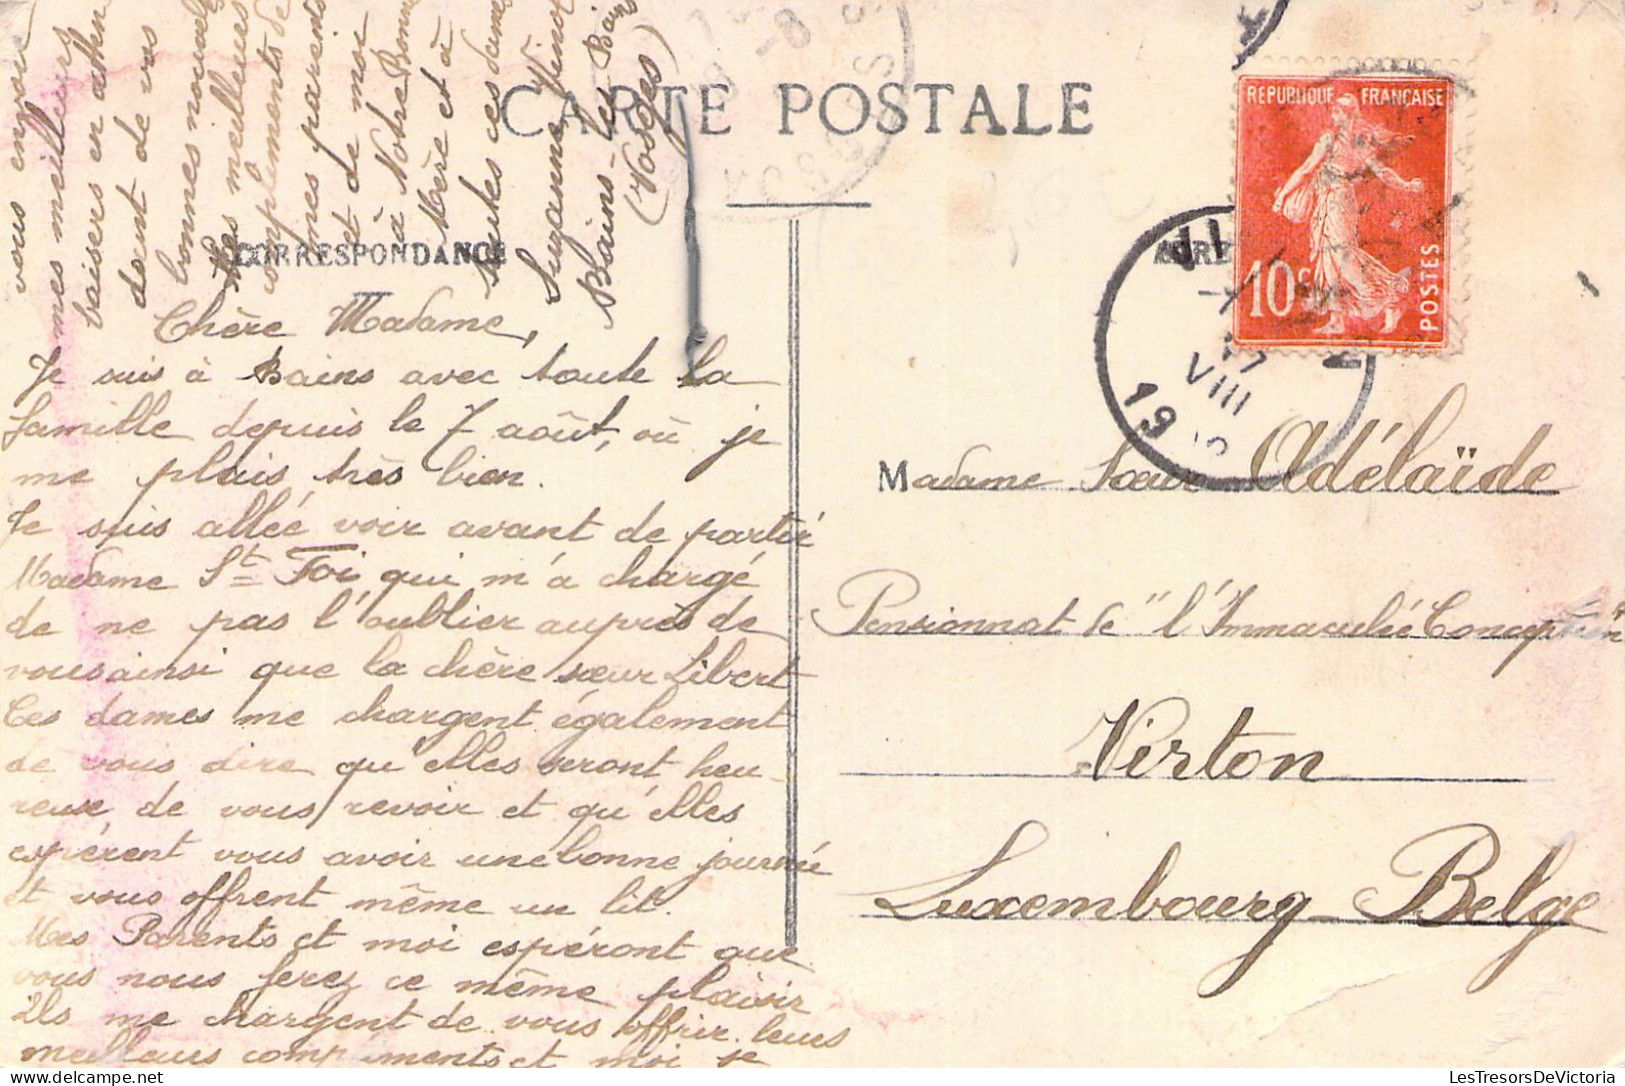 CARTE POSTALE
CORRESPONDANCE
REPUBLIQUE FRANÇAISE
10c
POSTES
VIII
19
Chère Madame,
Je suis à Bains avec toute la
famille depuis le 7 août, où je
me plais très bien.
Je suis allée voir avant de partir
Madame St Foi qui m'a chargé
de ne pas l'oublier auprès de
vous ainsi que la chère sœur Libert
Ces dames me chargent également
de vous dire qu'elles seront heu-
reuse de vous revoir et qu'elles
espérent vous avoir une bonne journée
et vous offrent même un lit.
Mes Parents et moi espéront que
vous nous ferez ce même plaisir
Ils me chargent de vous offrir leurs
meilleurs compliments et moi je
vous envoie
mes meilleurs
baisers en atten
dant de vos
bonnes nouvelles
Mes meilleurs
compliments de
mes parents
et de moi
à Notre Bonne
Mère et à
toutes ces dames
Suzanne
Bains-les-Bains
(Vosges)
Madame Sœur Adélaïde
Pensionnat de "l'Immaculée Conception
Virton
Luxembourg Belge
LesTresorsDeVictoria